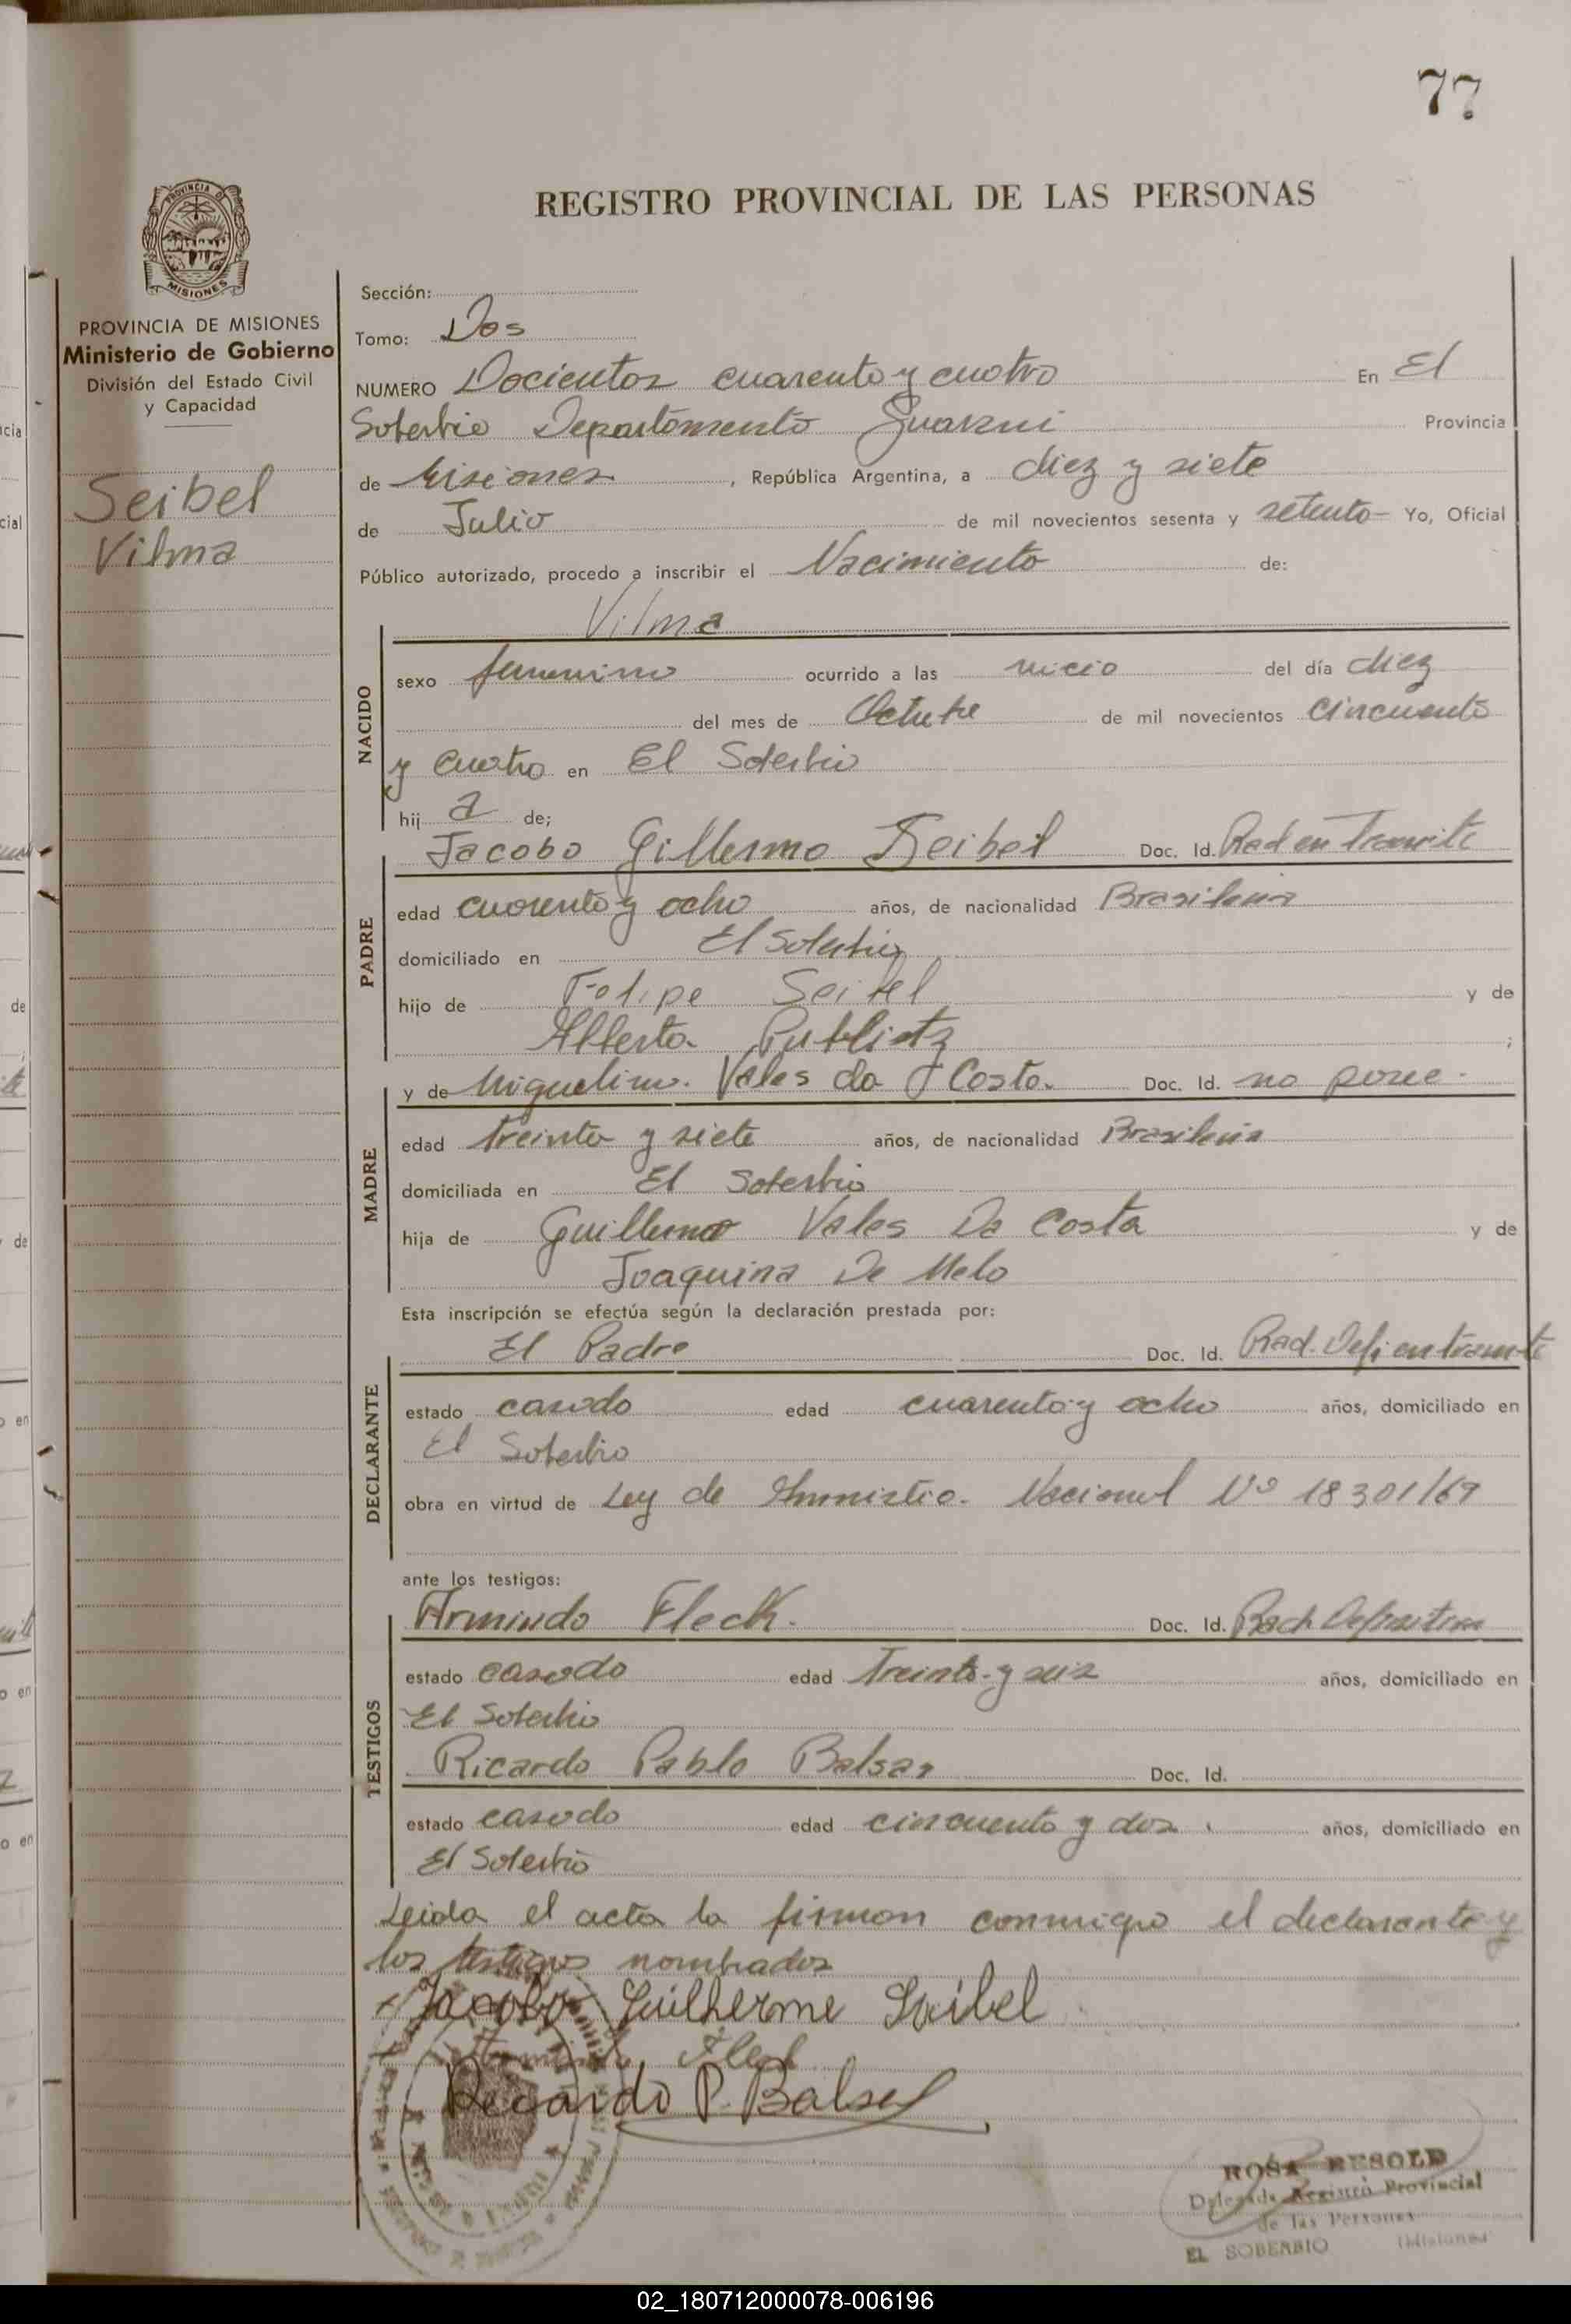 77
REGISTRO PROVINCIAL DE LAS PERSONAS
PROVINCIA DE
MISIONES
PROVINCIA DE MISIONES
Ministerio de Gobierno
División del Estado Civil
y Capacidad
Seibel
Vilma
Sección:
Tomo: Dos
NUMERO Docientos cuarenta y cuatro En El
Soberbio Departamento Guarani Provincia
de Misiones, República Argentina, a diez y siete
de Julio de mil novecientos sesenta y setenta Yo, Oficial
Público autorizado, procedo a inscribir el Nacimiento de:
Vilma
NACIDO
sexo femenino ocurrido a las del día diez
del mes de Octubre de mil novecientos cincuenta
y cuatro en El Soberbio
hij a de;
Jacobo Gillermo Seibel Doc. Id. Rad en Tramite
PADRE
edad cuarenta y ocho años, de nacionalidad Brasileña
domiciliado en El Soberbio
hijo de Felipe Seibel y de
Alberta Publietz ;
y de Miguelina Veles da Costa Doc. Id. no posee
MADRE
edad treinta y siete años, de nacionalidad Brasileña
domiciliada en El Soberbio
hija de Guillermo Veles Da Costa y de
Joaquina De Melo
Esta inscripción se efectúa según la declaración prestada por:
El Padre Doc. Id. Rad. Defi en tramite
DECLARANTE
estado casado edad cuarenta y ocho años, domiciliado en
El Soberbio
obra en virtud de Ley de Amnistia Nacional Nº 18301/69
ante los testigos:
Armindo Fleck. Doc. Id. Rad. Definitiva
TESTIGOS
estado casado edad Treinta y seis años, domiciliado en
El Soberbio
Ricardo Pablo Balsar Doc. Id.
estado casado edad cincuenta y dos años, domiciliado en
El Soberbio
Leida el acta la firman conmigo el declarante y
los testigos nombrados
Jacobo Guilherme Seibel
Fleck
Ricardo P. Balse
ROSA RESOLD
Delegada Registro Provincial
de las Personas
EL SOBERBIO (Misiones)
02_180712000078-006196